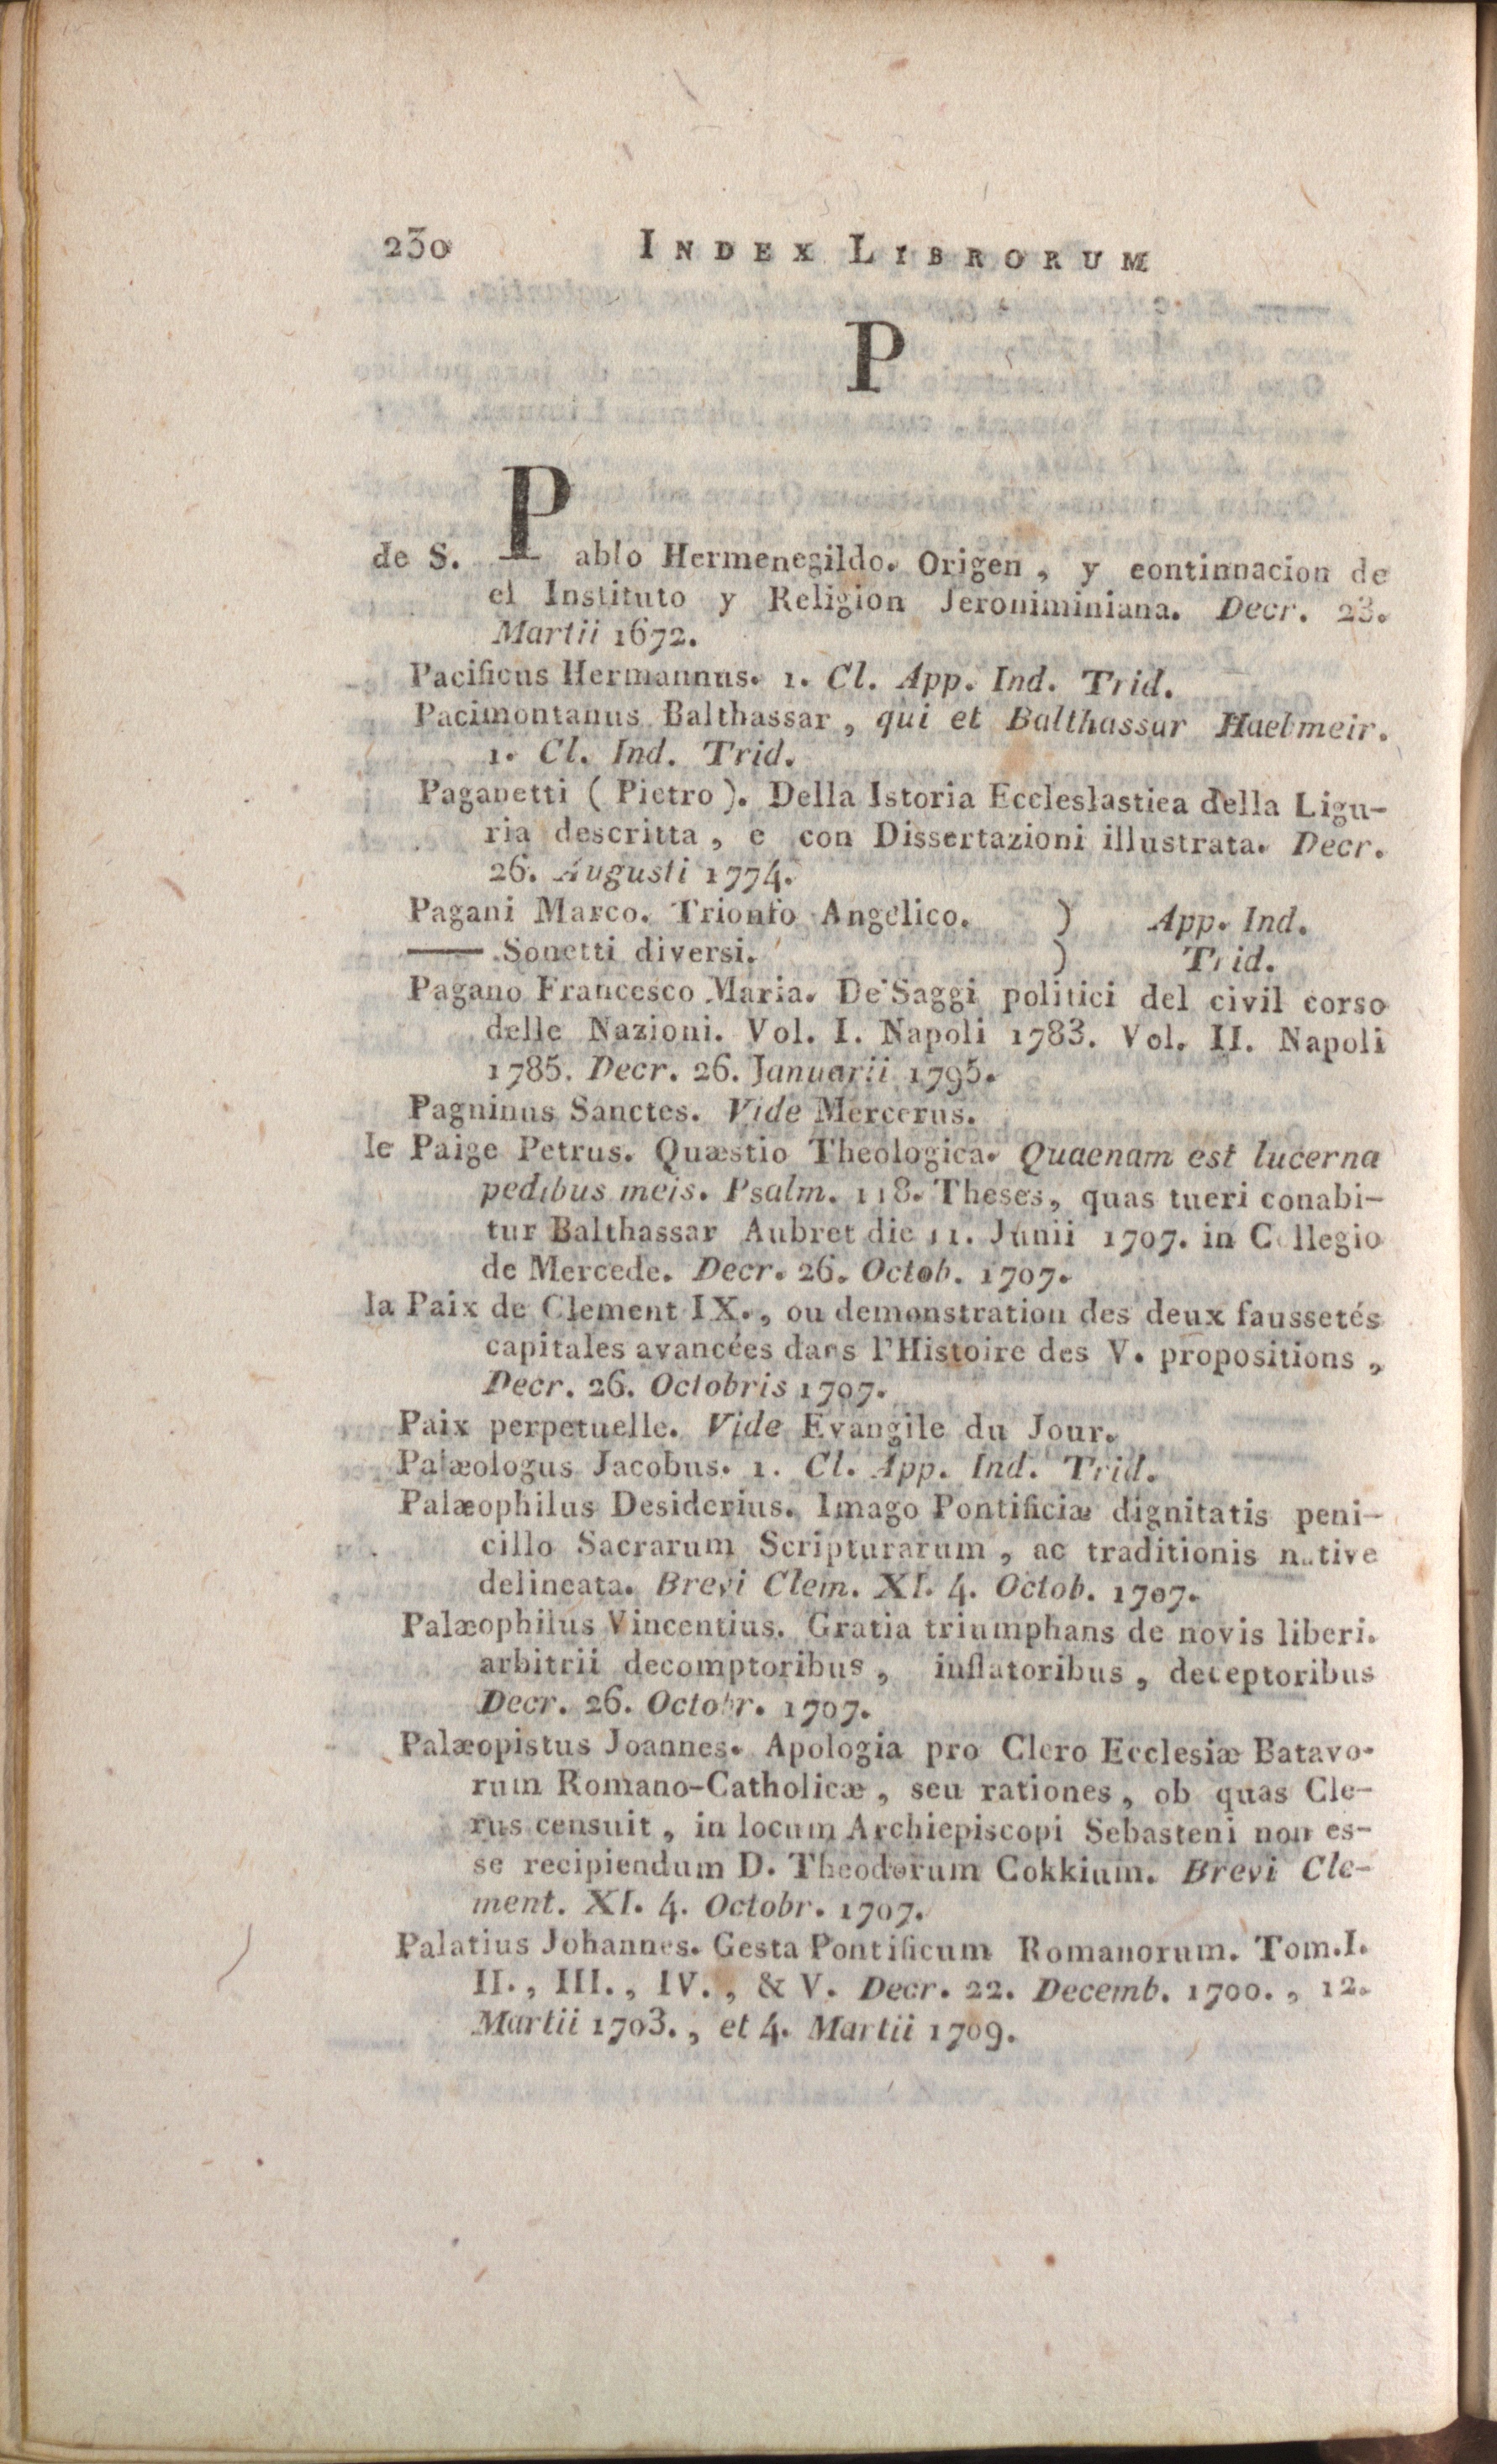 230 INDEX LIBRORUM
P
de S. Pablo Hermenegildo. Origen, y eontinnacion de
el Instituto y Religion Jeroniminiana. Decr. 23.
Martii 1672.
Pacificus Hermannus. 1. Cl. App. Ind. Trid.
Pacimontanus Balthassar, qui et Balthassar Huebmeir.
1. Cl. Ind. Trid.
Paganetti ( Pietro ). Della Istoria Eccleslastiea della Ligu-
ria descritta, e con Dissertazioni illustrata. Decr.
26. Augusti 1774.
Pagani Marco. Trionfo Angelico. ) App. Ind.
—— Sonetti diversi. ) Trid.
Pagano Francesco Maria. De'Saggi politici del civil corso
delle Nazioni. Vol. I. Napoli 1783. Vol. II. Napoli
1785. Decr. 26. Januarii 1795.
Pagninus Sanctes. Vide Mercerus.
le Paige Petrus. Quæstio Theologica. Quaenam est lucerna
pedibus meis. Psalm. 118. Theses, quas tueri conabi-
tur Balthassar Aubret die 11. Junii 1707. in Collegio
de Mercede. Decr. 26. Octob. 1707.
la Paix de Clement IX., ou demonstration des deux faussetés
capitales avancées dans l'Histoire des V. propositions,
Decr. 26. Octobris 1707.
Paix perpetuelle. Vide Evangile du Jour.
Palæologus Jacobus. 1. Cl. App. Ind. Trid.
Palæophilus Desiderius. Imago Pontificiæ dignitatis peni-
cillo Sacrarum Scripturarum, ac traditionis native
delineata. Brevi Clem. XI. 4. Octob. 1707.
Palæophilus Vincentius. Gratia triumphans de novis liberi.
arbitrii decomptoribus, inflatoribus, deceptoribus
Decr. 26. Octobr. 1707.
Palæopistus Joannes. Apologia pro Clero Ecclesiæ Batavo-
rum Romano-Catholicæ, seu rationes, ob quas Cle-
rus censuit, in locum Archiepiscopi Sebasteni non es-
se recipiendum D. Theodorum Cokkium. Brevi Cle-
ment. XI. 4. Octobr. 1707.
Palatius Johannes. Gesta Pontificum Romanorum. Tom.I.
II., III., IV., & V. Decr. 22. Decemb. 1700., 12.
Martii 1703., et 4. Martii 1709.